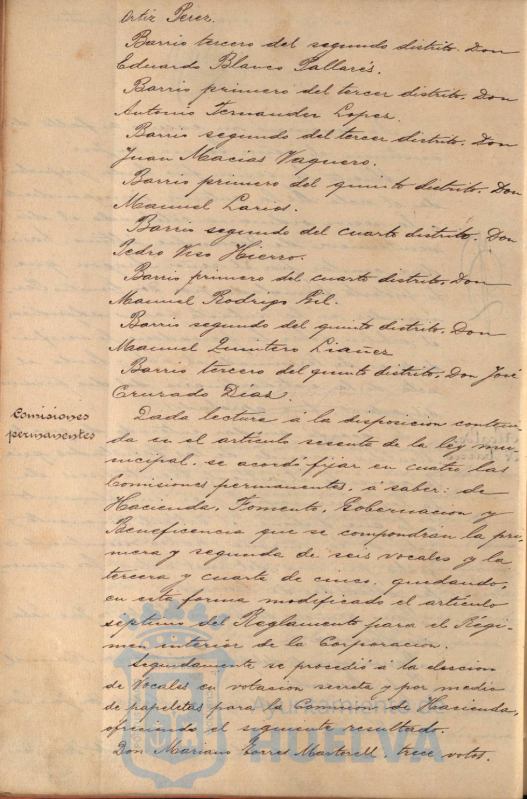 Ortiz Perez.
Barrio tercero del segundo distrito. Don
Eduardo Blanco Pallarés.
Barrio primero del tercer distrito. Don
Antonio Fernandez Lopez.
Barrio segundo del tercer distrito. Don
Juan Macias Vaquero.
Barrio primero del quinto distrito. Don
Manuel Larios.
Barrio segundo del cuarto distrito. Don
Pedro Viso Hierro.
Barrio primero del cuarto distrito, Don
Manuel Rodrigo Gil.
Barrio segundo del quinto distrito. Don
Manuel Quintero Liañez
Barrio tercero del quinto distrito, Don José
Cruzado Dias.
Comisiones
permanentes
Dada lectura á la disposicion conteni-
da en el artículo sesenta de la ley mu-
nicipal, se acordó fijar en cuatro las
Comisiones permanentes, á saber: de
Hacienda, Fomento, Gobernacion y
Beneficencia que se compondrán la pri-
mera y segunda de seis vocales y la
tercera y cuarta de cinco, quedando,
en esta forma modificado el artículo
septimo del Reglamento para el Régi-
men interior de la Corporacion.
Seguidamente se procedió á la eleccion
de Vocales en votacion secreta y por medio
de papeletas para la Comision de Hacienda,
ofreciendo el siguiente resultado.
Don Mariano Torres Martorell, trece votos.
Ayuntamiento de
HUELVA